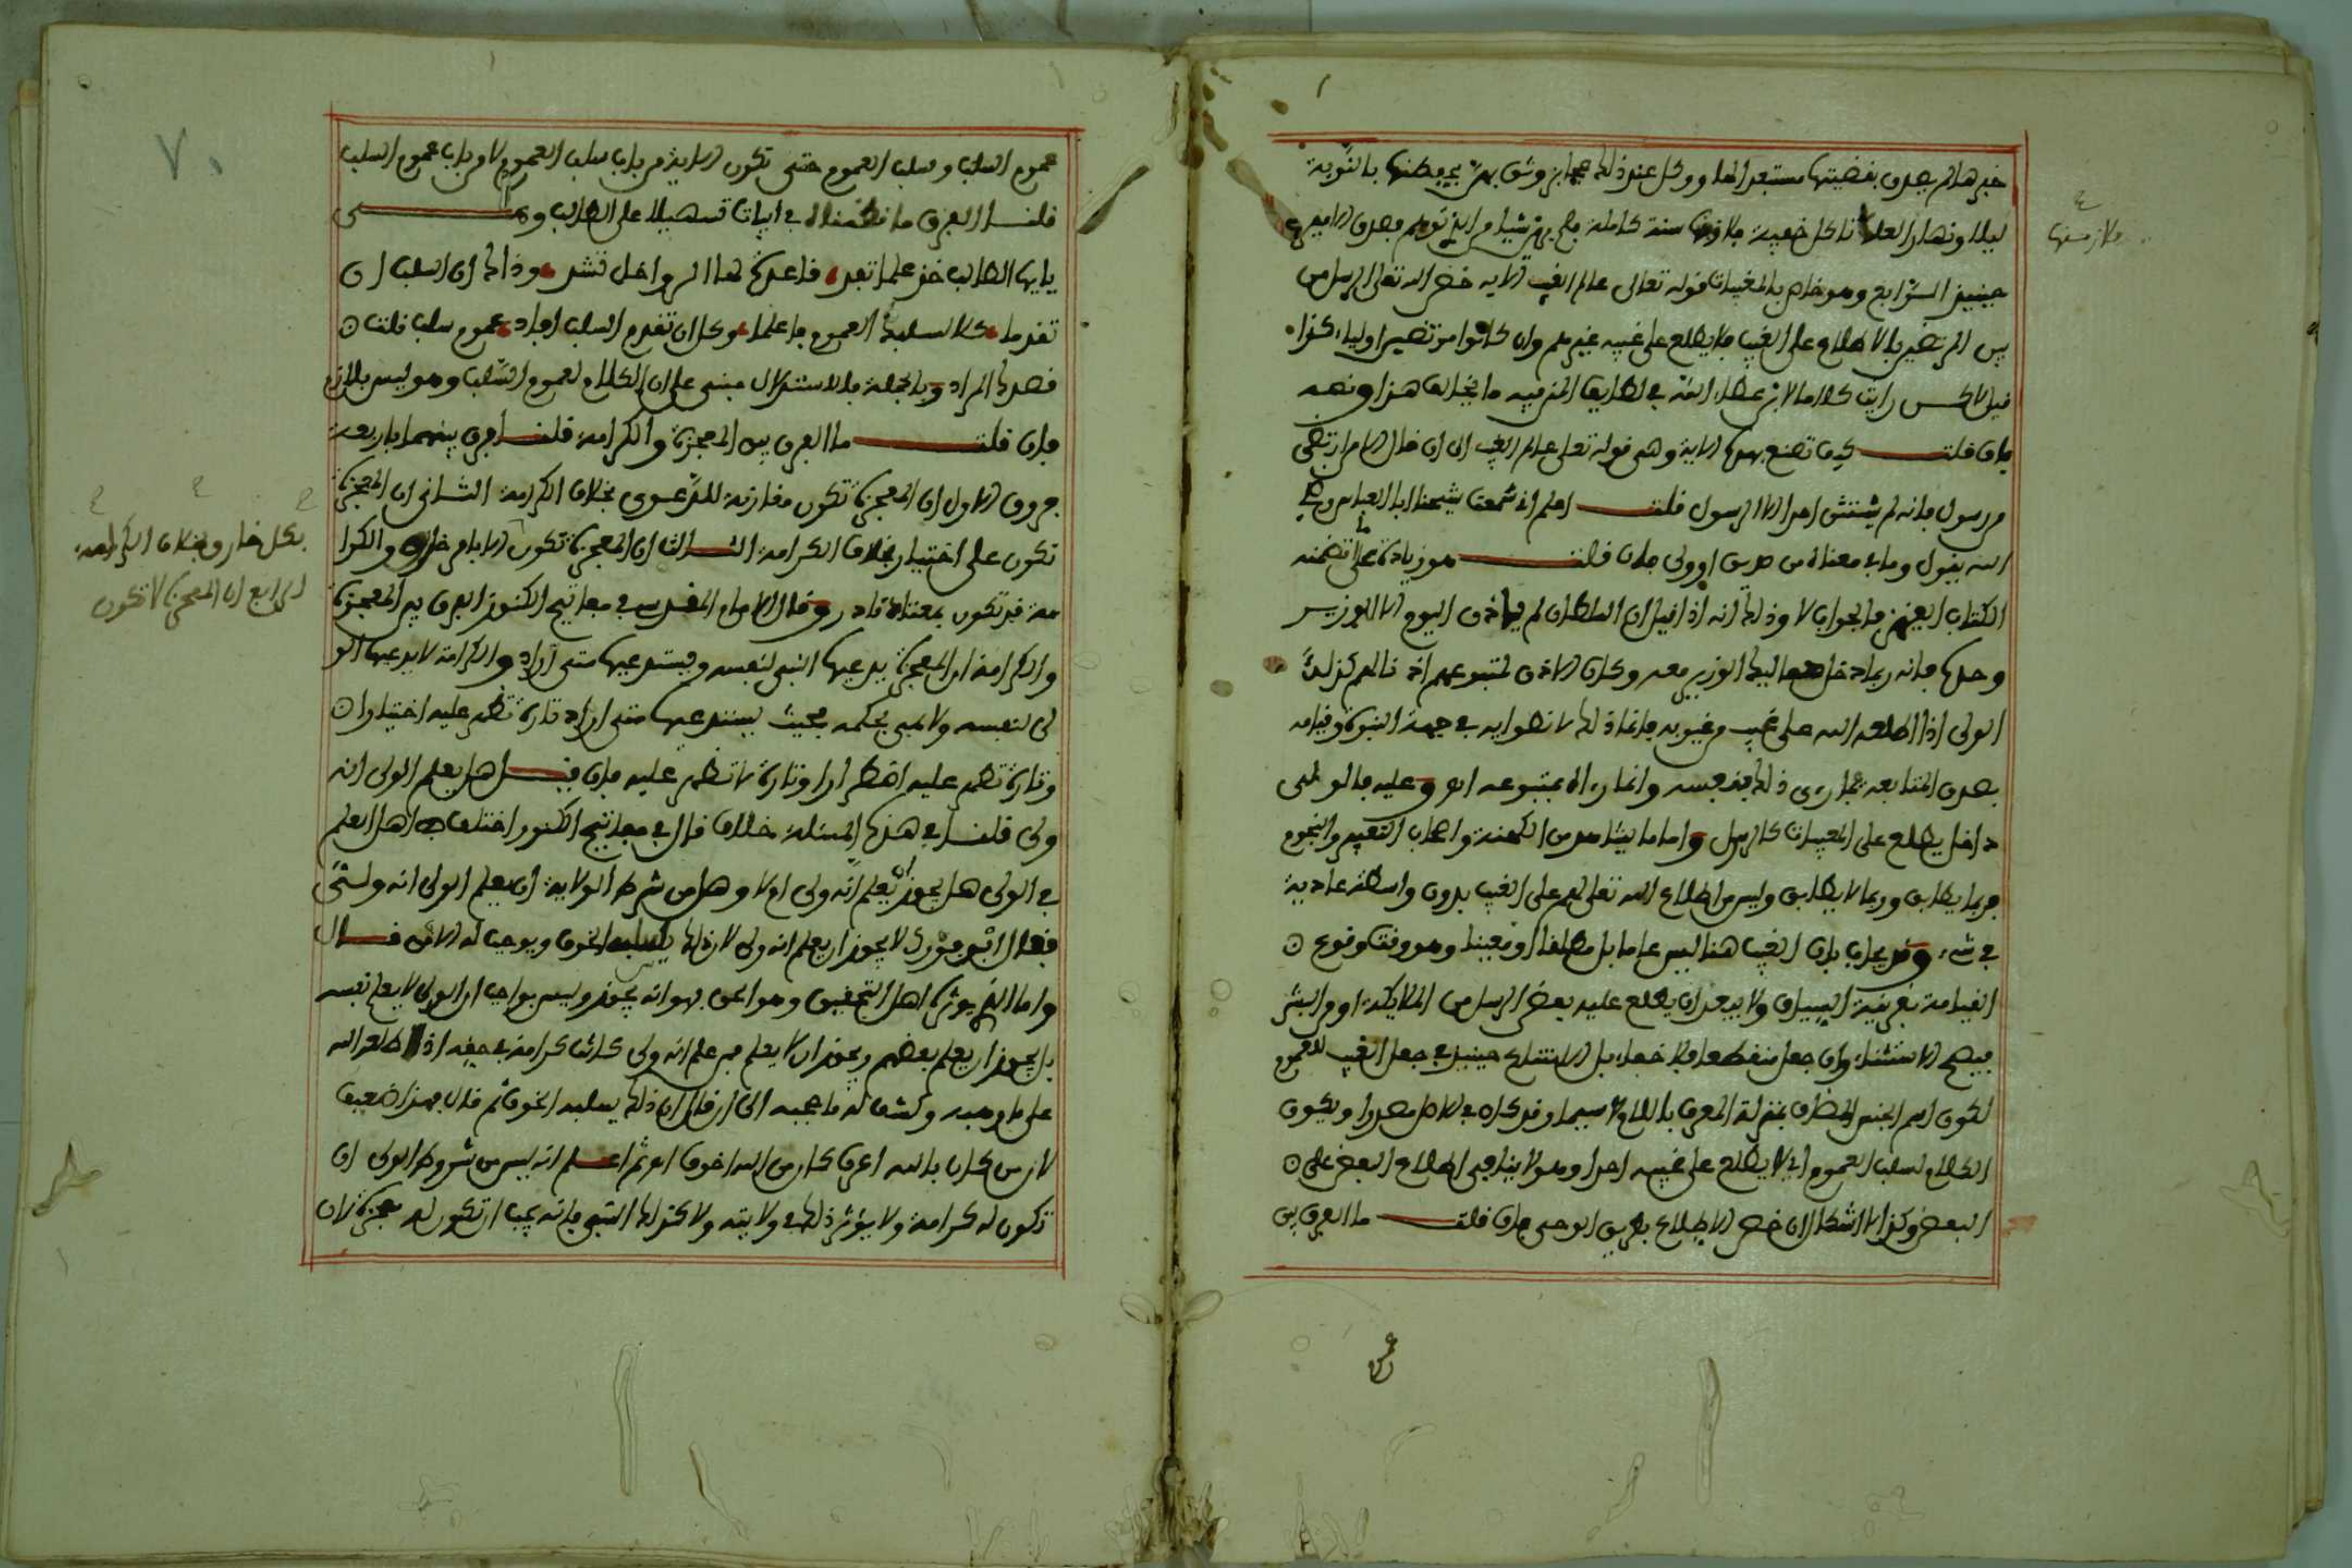 ليلا ونهارا لعلنا ناكل خفية سنة كاملة
حينيذ وهو خاص بالمغيبات قوله تعالى عالم الغيب الاية خص الله تعالى الرسل من
بين المرتضين بالاطلاع على الغيب فلا يطلع على غيبه غيرهم وان كانوا مرتضين اولياء كذا
قيل لاكن رايت كلاما لابن عطاء الله في لطايف المنن فيه ما يخالف هذا ونصه
فان قلت كيف تصنع بهذه الاية وهي قوله تعلى عالم الغيب الى ان قال الا من ارتضى
من رسول فانه لم يستثن احدا الا الرسول قلت اعلم اني سمعت شيخنا ابا العباس رضي
الله يقول وما في معناه من صديق او ولي فان قلت هو زيادة على ما تضمنه
الكتاب العزيز فالجواب لا وذلك انه اذا قيل ان السلطان لم ياذن اليوم الا للوزير
وحده فانه ربما دخل مماليك الوزير معه وكان الاذن لمتبوعهم اذنا لهم كذلك
الولي اذا اطلعه الله على غيب من غيوبه فانما ذلك لانطوايه في جهة النبوة وقيامه
بصدق المتابعة فما رءى ذلك بنفسه وانما رءاه بمتبوعه اهـ وعليه فالولي
داخل يطلع على المغيبات كالرسول واما ما يشاهد من الكهنة واصحاب التعبير والنجوم
فربما يطابق وربما لا يطابق وليس من اطلاع الله تعلى لهم على الغيب بدون واسطة عادية
في شيء وقد يجاب بان الغيب هنا ليس عاما بل مطلقا او معينا وهو وقت وقوع
القيامة بقرينة السياق ولا يبعد ان يطلع عليه بعض الرسل من الملايكة او من البشر
فيصح الاستثناء وان جعل منقطعا فلا خفاء بل الامتناع حينيذ في جعل الغيب للعموم
لكون اسم الجنس المضاف بمنزلة المعرف باللام لاسيما وقد كان في الاصل مصدرا ويكون
الكلام لسلب العموم اي لا يطلع على غيبه احدا وهو لا ينافي اطلاع البعض على
البعض وكذا لا اشكال ان خص الاطلاع بطريق الوحي فان قلت ما الفرق بين
ملازمتها
عموم السلب وسلب العموم حتى تكون الاية من باب سلب العموم لا من باب عموم السلب
قلنا الفرق ما نظمناه في ابيات تسهيلا على الطالب وهي
يايها الطالب خذ علما تفد قاعدة لها الرواحل تشد وذاك ان السلب ان
تقدما كلا لسلبه العموم فاعلما وكل ان تقدم السلب افاد عموم سلب قلت
فصدك المراد وبالجملة فالاستدلال مبني على ان الكلام لعموم السلب وهو ليس بلازم
فان قلت ما الفرق بين المعجزة والكرامة قلنا فرق بينهما باربعة
فروق الاول ان المعجزة تكون مقارنة للدعوى بخلاف الكرامة الثاني ان المعجزة
تكون على اختيار بخلاف الكرامة الثالث ان المعجزة تكون الا بامر خارق والكرا
مة قد تكون بمعتاد نادر وقال الامام المقدسي في مفاتيح الكنوز الفرق بين المعجزة
والكرامة ان المعجزة يدعيها النبي لنفسه ويستدعيها متى اراد والكرامة لا يدعيها الو
لي لنفسه ولا هي بحكمه بحيث يستدعيها متى اراد تارة تظهر عليه اختيارا
وتارة تظهر عليه اضطرارا وتارة لا تظهر عليه فان قيل هل يعلم الولي انه
ولي قلنا في هذه المسئلة خلاف قال في مفاتيح الكنوز اختلف اهل العلم
في الولي هل يجوز ان يعلم انه ولي ام لا وهل من شرط الولاية ان يعلم الولي انه ولي
فقال ابن فورك لا يجوز ان يعلم انه ولي لان ذلك يسلبه الخوف ويوجب له الامن قال
واما الذي يوثره اهل التحقيق وهو الحق فهو انه يجوز وليس بواجب ان الولي لا يعلم نفسه
بل يجوز ان يعلم بعضهم ويجوز ان لا يعلم فمن علم انه ولي كانت كرامة في حقه اذا اطلعه الله
على ما وهبه وكشف له ما حجبه الى ان قال ان ذلك يسلبه الخوف ثم قال بهذا ضعيف
لان من كان بالله اعرف كان من الله اخوف اهـ ثم اعلم انه ليس من شروط الولي ان
تكون له كرامة ولا يؤثر ذلك في ولايته ولا كذلك النبي فانه يجب ان تكون له معجزة لان
بكل خارق بخلاف الكرامة
الرابع ان المعجزة لا تكون
٧٠